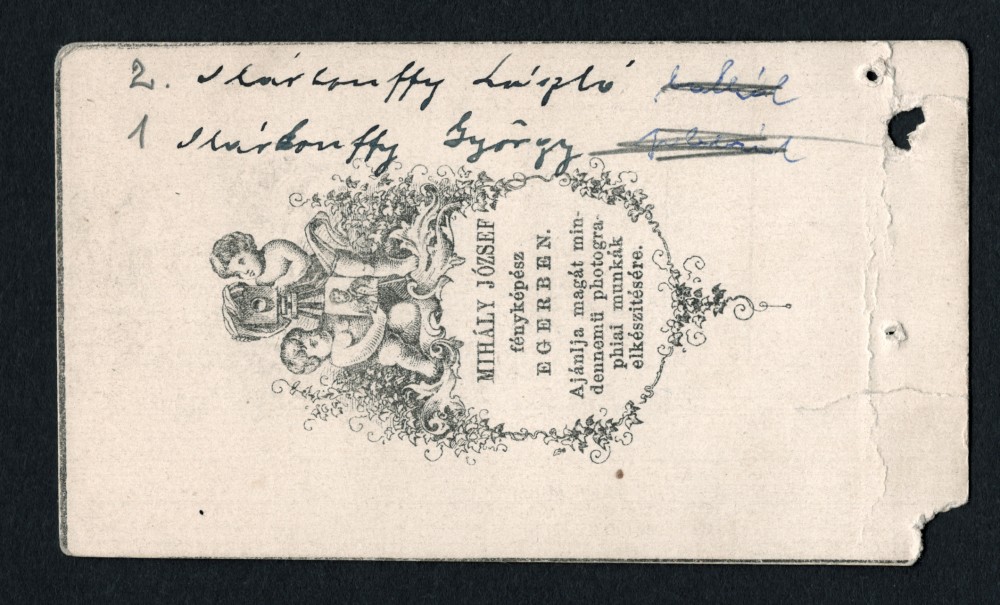 2. Márkouffy László
1 Márkouffy György
MIHÁLY JÓZSEF
fényképész
EGERBEN.
Ajánlja magát min-
dennemü photogra-
phiai munkák
elkészitésére.